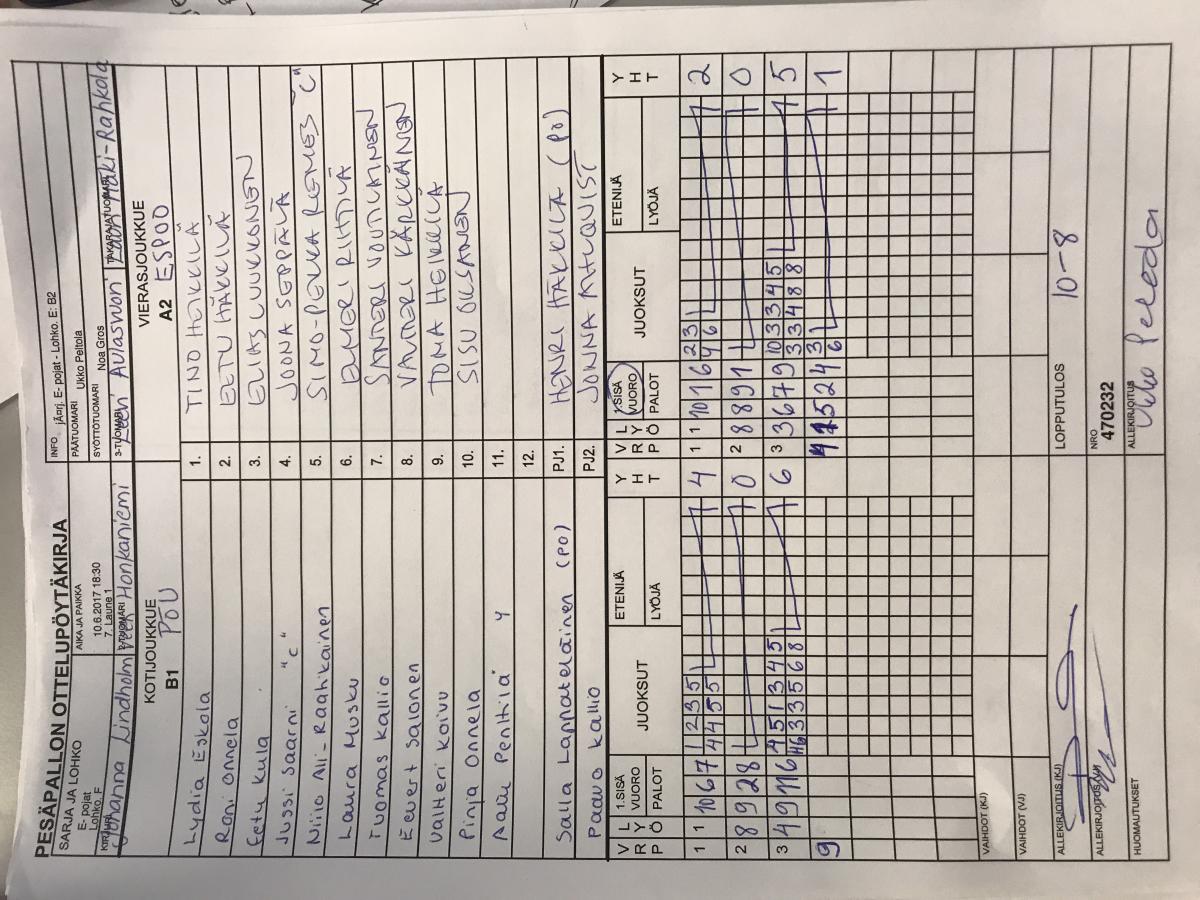 PESÄPALLON OTTELUPÖYTÄKIRJA
SARJA JA LOHKO
E- pojat
Lohko. F
AIKA JA PAIKKA
10.6.2017 18:30
7. Laune 1
INFO
järj. E- pojat - Lohko. E: B2
PÄÄTUOMARI Ukko Peltola
SYÖTTÖTUOMARI Noa Gros
Johanna Lindholm
Honkaniemi
3-TUOMARI
Aulasvuori
TAKARAJATUOMARI
Mäki-Rahkola
KOTIJOUKKUE
B1 PÖU
VIERASJOUKKUE
A2 ESPOO
Lydia Eskola 1. TINO HEIKKILÄ
Roni Onnela 2. EETU HÄKKILÄ
Eetu Kula 3. ELIAS LUUKKONEN
Jussi Saarni "c" 4. JOONA SEPPÄLÄ
Niilo Ali-Raahikainen 5. SIMO-PEKKA REMES "C"
Laura Musku 6. ELMERI RIIHILÄ
Tuomas Kallio 7. SANTERI VOUTILAINEN
Eevert Salonen 8. VALTTERI KÄRKKÄINEN
Valtteri Koivu 9. TOMA HEIKKILÄ
Pinja Onnela 10. SISU OKSANEN
Aatu Penttilä 4 11.
12.
Salla Lappateläinen (PO) PJ1. HENRI HÄKKILÄ (PO)
Paavo Kallio PJ2. JONNA AHLQVIST
V R P L Y Ö 1.SISÄ VUORO PALOT JUOKSUT ETENIJÄ LYÖJÄ Y H T
V R P L Y Ö 1.SISÄ VUORO PALOT JUOKSUT ETENIJÄ LYÖJÄ Y H T
1 1 10 6 7 1 2 3 5 4 1 1 10 1 6 2 3 2
4 4 5 5 4 6
2 8 9 2 8 0 2 8 8 9 1 0
3 4 9 11 6 4 5 1 3 4 5 6 3 3 6 7 9 10 3 3 4 5 5
6 3 3 5 6 8 3 3 4 8 8
9 5 2 4 3 1
6
VAIHDOT (KJ)
VAIHDOT (VJ)
ALLEKIRJOITUS (KJ)
LOPPUTULOS 10-8
ALLEKIRJOITUS (VJ)
NRO
470232
HUOMAUTUKSET
ALLEKIRJOITUS
Ukko Peltola